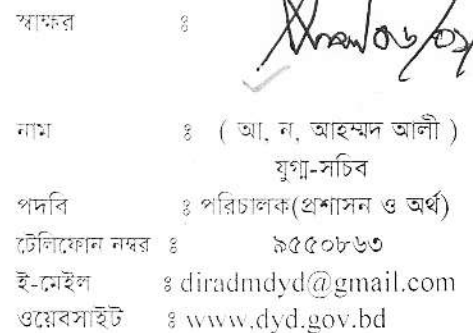 স্বাক্ষর ঃ
নাম ঃ ( আ, ন, আহম্মদ আলী )
যুগ্ম-সচিব
পদবি ঃ পরিচালক(প্রশাসন ও অর্থ)
টেলিফোন নম্বর ঃ ৯৫৫০৮৬৩
ই-মেইল ঃ diradmdyd@gmail.com
ওয়েবসাইট ঃ www.dyd.gov.bd